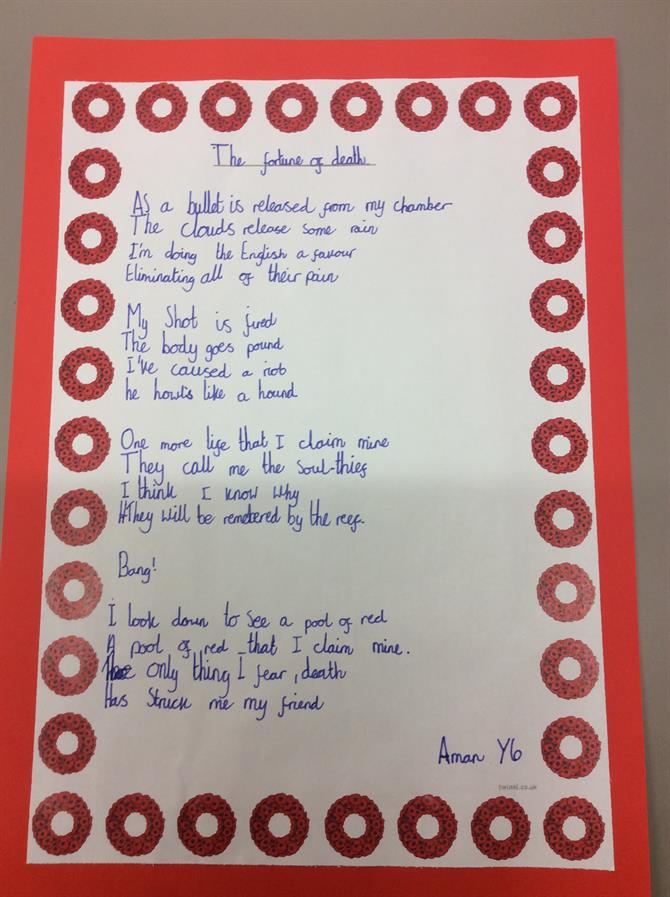 The fortune of death
As a bullet is released from my chamber
The clouds release some rain
I'm doing the English a favour
Eliminating all of their pain
My Shot is fired
The body goes pound
I've caused a riot
he howls like a hound
One more life that I claim mine
They call me the Soul-thief
I think I know why
They will be remebered by the reef.
Bang!
I look down to see a pool of red
A pool of red that I claim mine.
The only thing I fear, death
Has Struck me my friend
Aman Y6
twinkl.co.uk